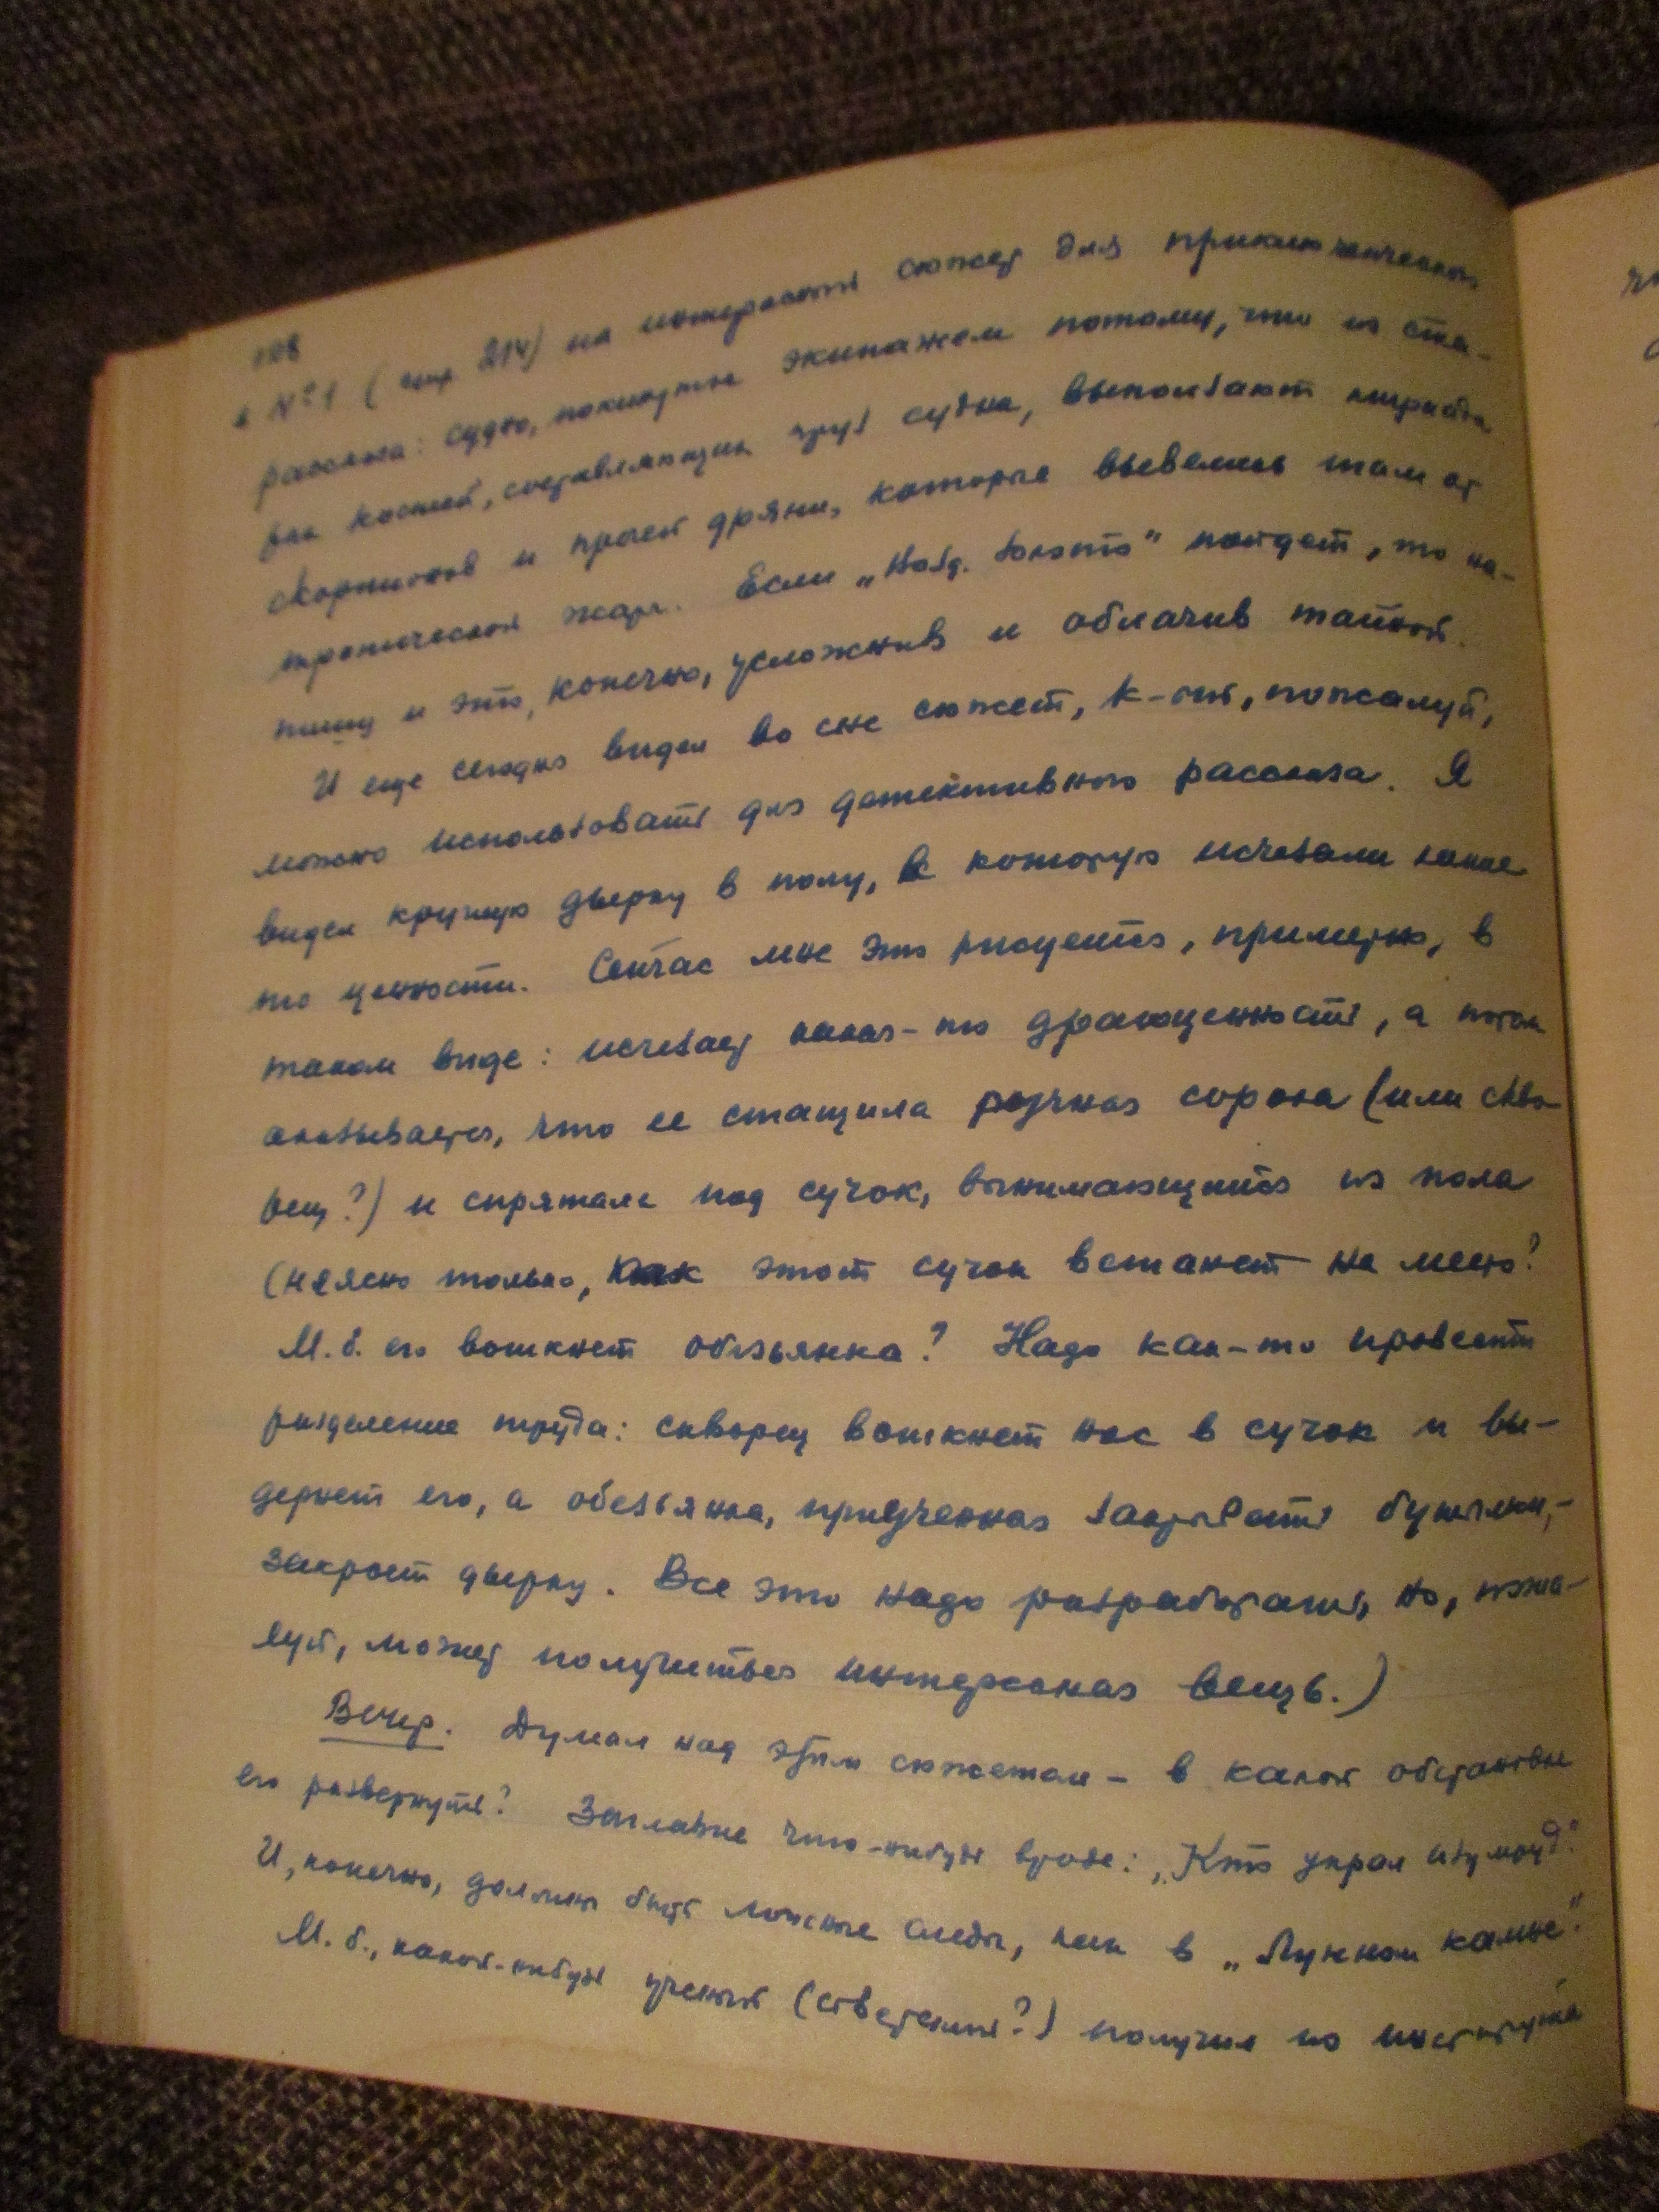 108
в №1 (стр. 214) на интересный сюжет для приключенческого
рассказа: судно, покинутое экипажем потому, что из ста-
рых костей, составляющих груз судна, выползают мириады
скорпионов и прочей дряни, которые вывелись там от
тропической жары. Если „ золото" пойдет, то на-
пишу и это, конечно, усложнив и облачив тайной.
И еще сегодня видел во сне сюжет, к-рый, пожалуй,
можно использовать для детективного рассказа. Я
видел круглую дверку в полу, в которую исчезали какие
то ценности. Сейчас мне это рисуется, примерно, в
таком виде: исчезает какая-то драгоценность, а потом
оказывается, что ее стащила ручная сорока (или скво-
рец?) и спрятала под сучок, вынимающийся из пола
(неясно только, как этот сучок встанет на место?
М.б. его воткнет обезьянка? Надо как-то провести
разделение труда: скворец воткнет нос в сучок и вы-
дернет его, а обезьянка, приученная закрывать бутылки,-
закроет дверку. Все это надо разработать, но, пожа-
луй, может получиться интересная вещь.)
Вечер. Думал над этим сюжетом - в какой обстановке
его развернуть? Заглавие что-нибудь вроде: „Кто украл изумруд?"
И, конечно, должны быть ложные следы, как в „Лунном камне".
М.б., какой-нибудь ученый (советский?) получил из института